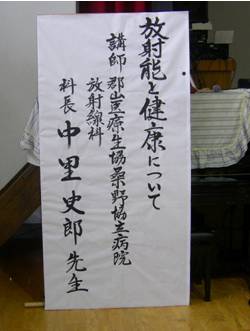 放射能と健康について
講師 郡山医療生協桑野協立病院
放射線科
科長 中里史郎先生